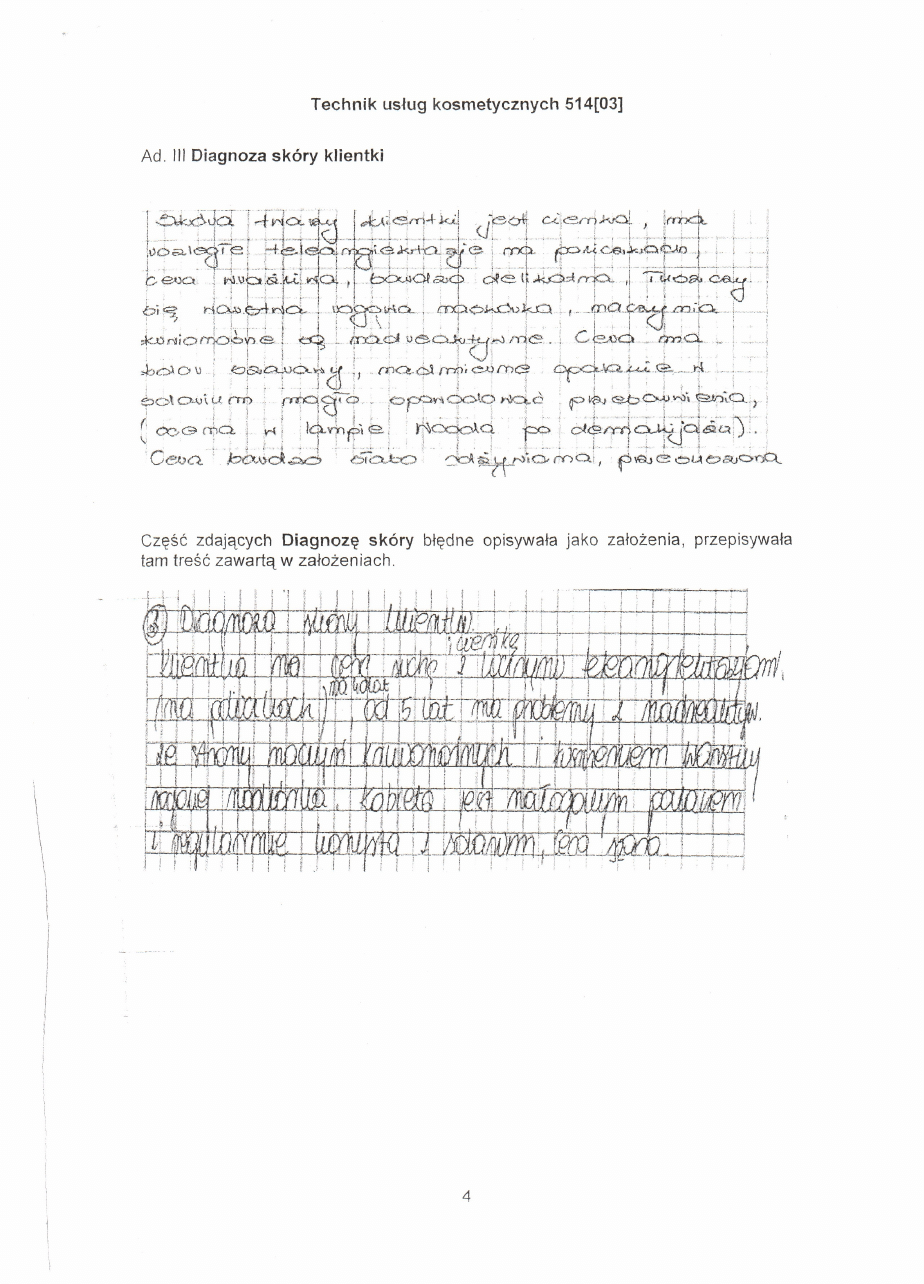 Technik usług kosmetycznych 514[03]
Ad. III Diagnoza skóry klientki
Skóra twarzy klientki jest ciemna, ma
rozległe teleangiektazje na policzkach,
cera wrażliwa, bardzo delikatna, Tworzy
się warstwa rogowa naskórka, naczynia
krwionośne są nadreaktywne. Cera ma
kolor szarawy, nadmierne opalanie w
solarium mogło spowodować przebarwienia,
(ocena w lampie Wooda po demakijażu).
Cera bardzo słabo odżywiona, przesuszona
Część zdających Diagnozę skóry błędne opisywała jako założenia, przepisywała
tam treść zawartą w założeniach.
③ Diagnoza skóry klientki.
i cienką
Klientka ma cerę suchą z licznymi teleangiektazjami
, ma 40 lat
(na policzkach) od 5 lat ma problemy z nadreaktyw.
ze strony naczyń krwionośnych i
rogowej naskórka. Kobieta jest nałogowym palaczem
i regularnie korzysta z solarium, cera szara.
4